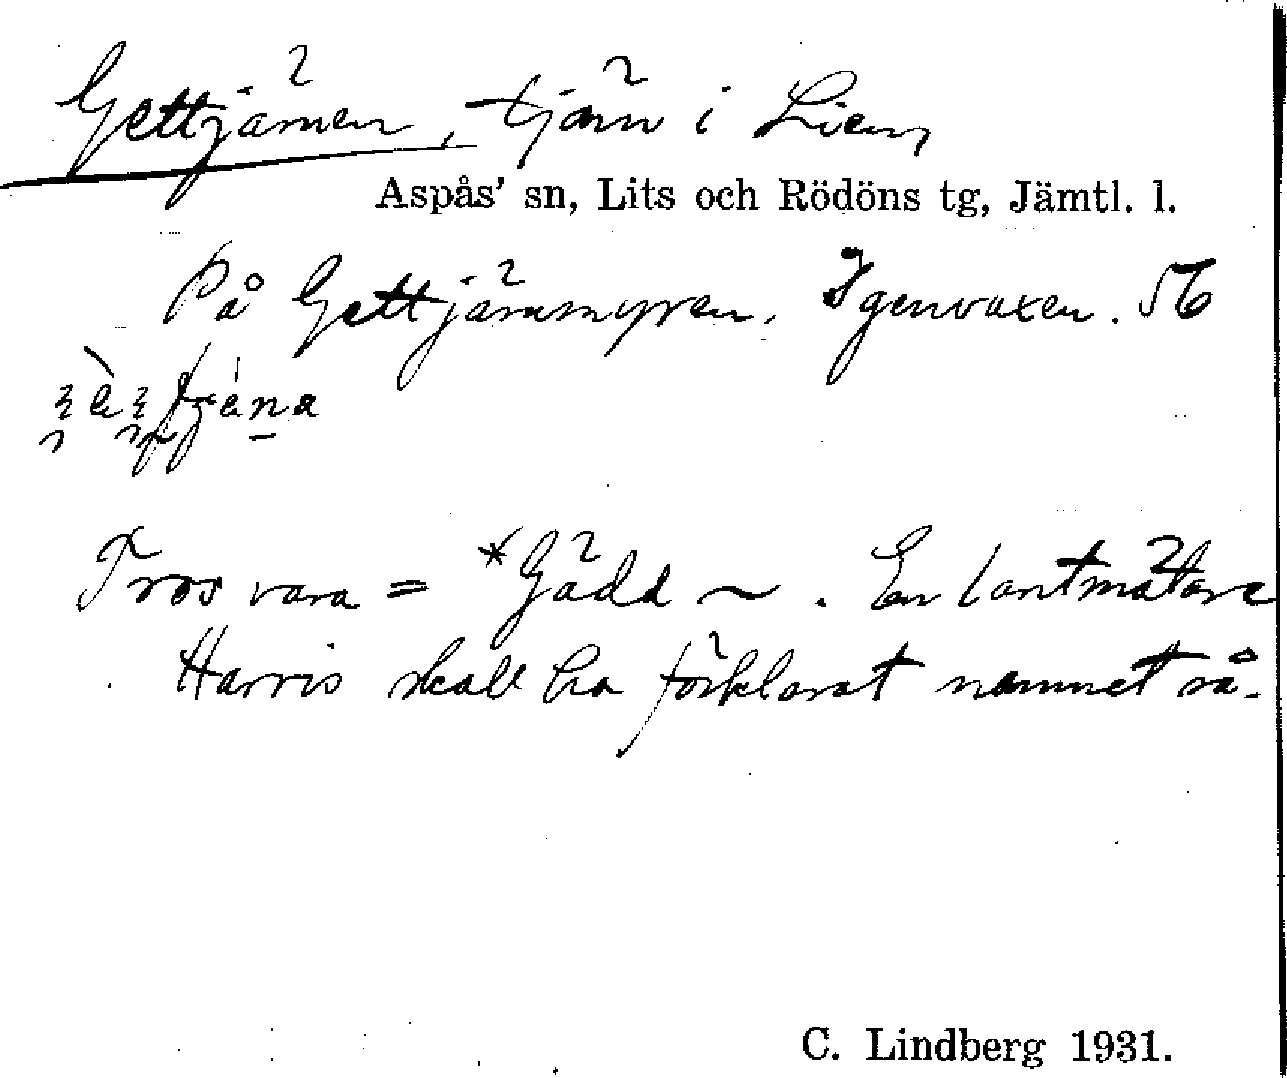 Gettjärnen, tjärn i Lien,
Aspås' sn, Lits och Rödöns tg, Jämtl. l.
På Gettjärnmyren. Igenvaxen. 56
Tros vara = *Gädd ~. En lantmätare
Harris skall ha förklarat namnet så.
C. Lindberg 1931.